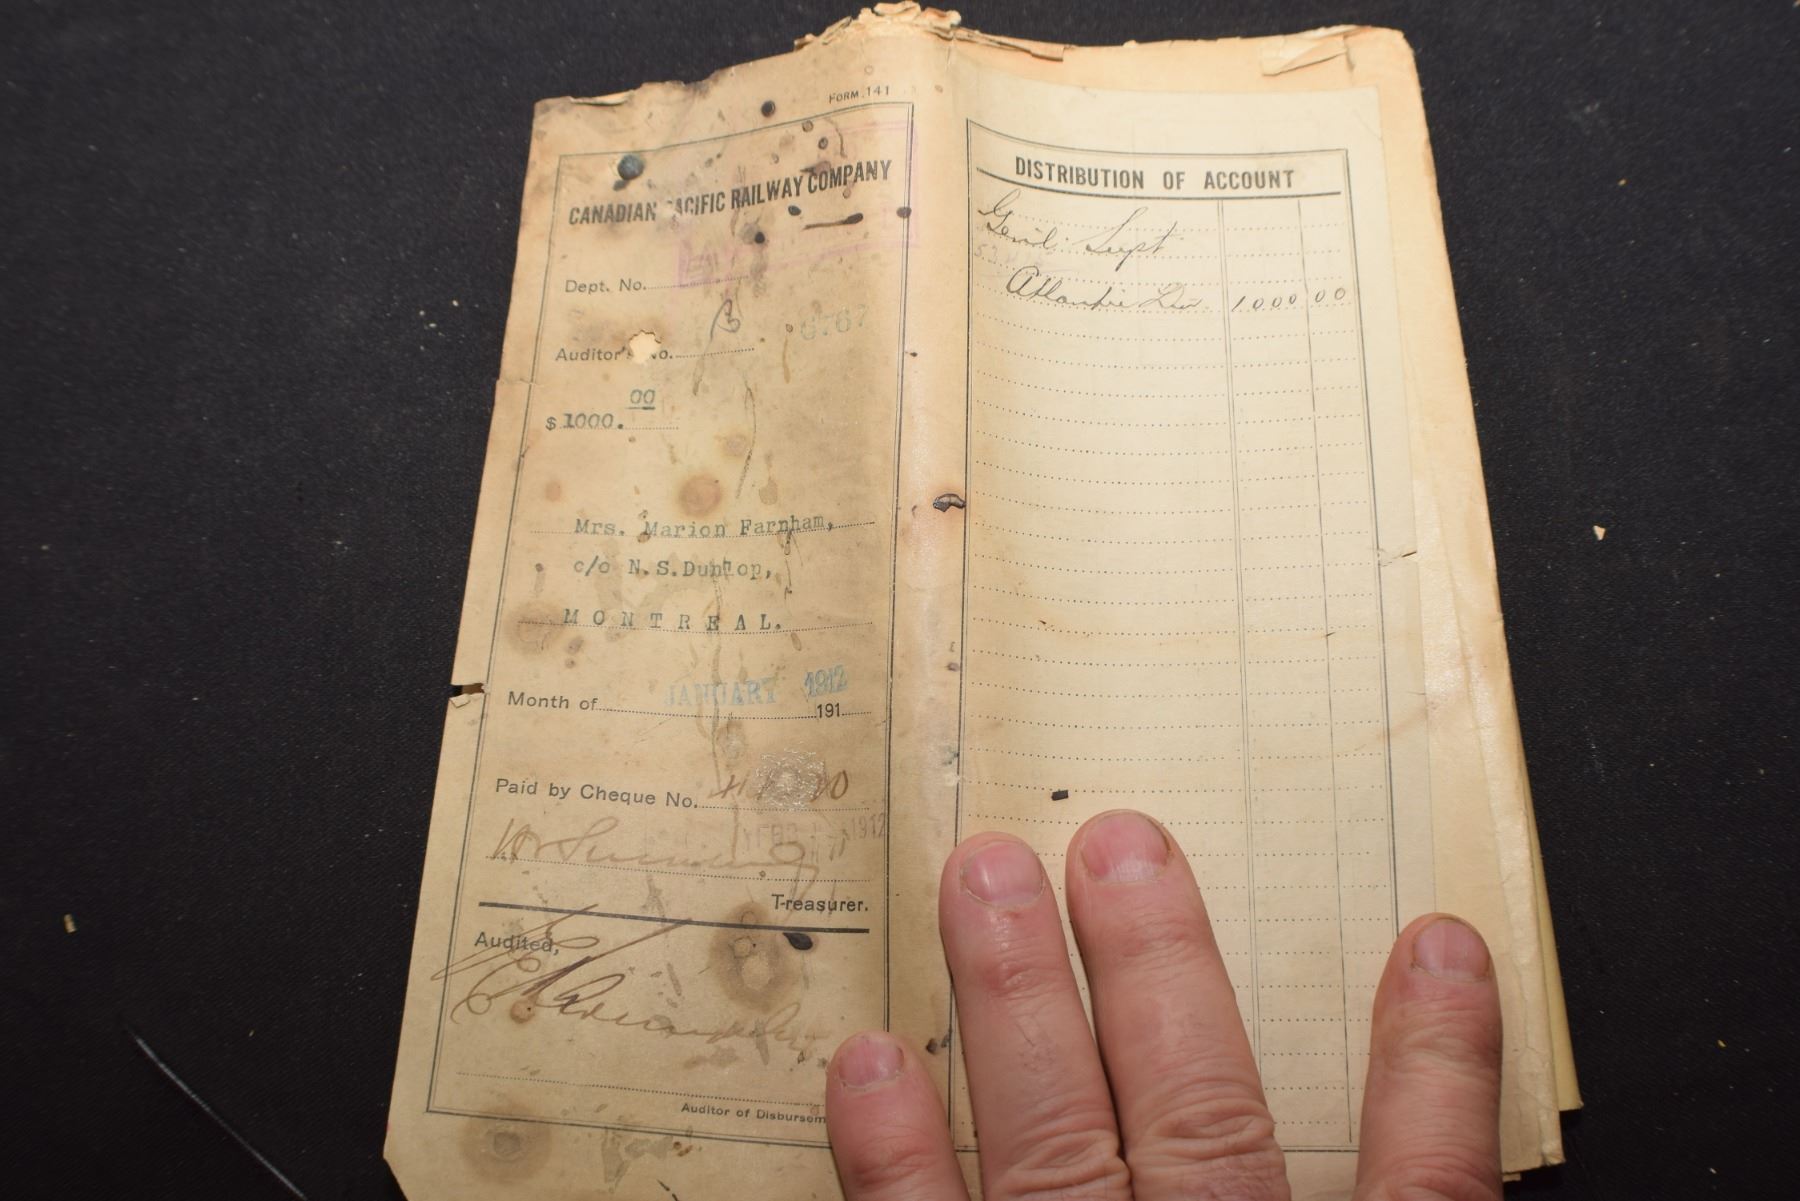 FORM 141
CANADIAN PACIFIC RAILWAY COMPANY
Dept. No.
6767
Auditor's No.
$ 1000.00
Mrs. Marion Farnham,
c/o N.S.Dunlop,
MONTREAL.
Month of JANUARY 1912 191
Paid by Cheque No.
1912
Treasurer.
Audited,
Auditor of Disbursem
DISTRIBUTION OF ACCOUNT
Gen'l Supt
Atlantic Div 1000 00